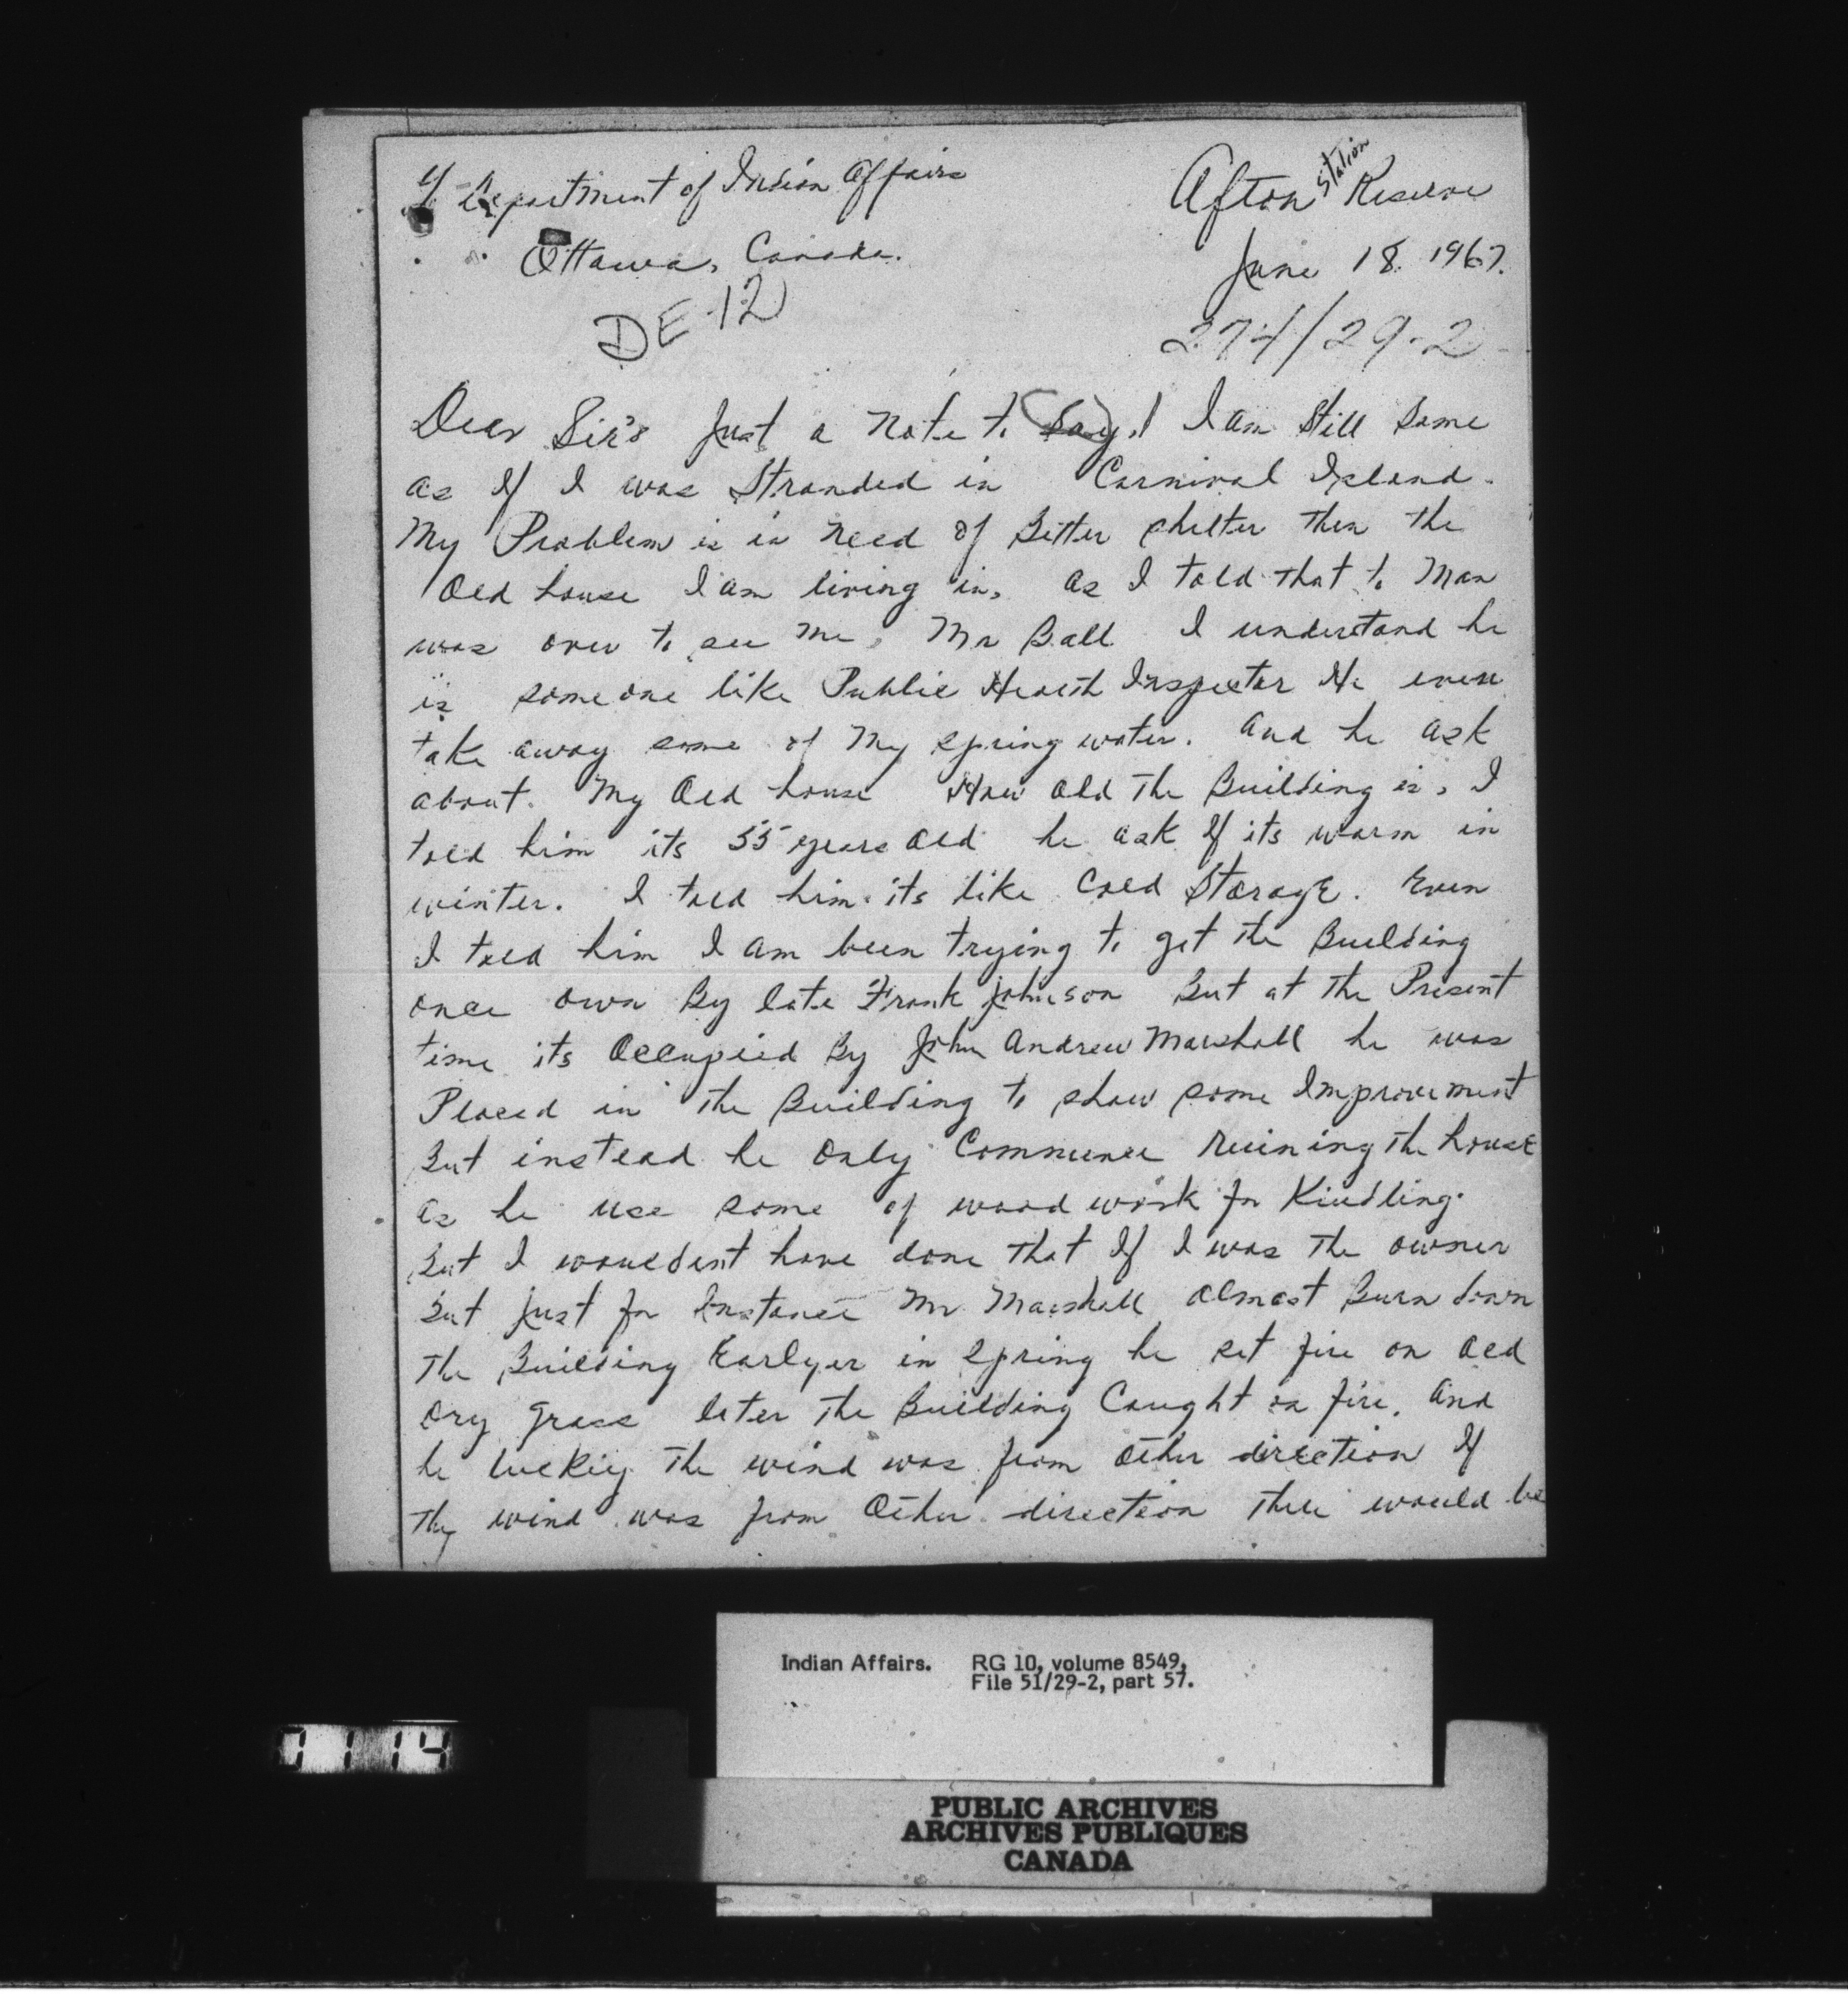 Department of Indian Affairs
Ottawa, Canada.
Afton Station Reserve
June 18. 1967.
DE-12
274/29-2
Dear Sir's Just a Note to Say, I am Still Same
as If I was Stranded in Carnival Island.
My Problem is in Need of Better shelter then the
Old house I am living in, as I told that to Man
was over to see me, Mr Ball I understand he
is someone like Public Health Inspector He even
take away some of My spring water. and he ask
about. My Old house How old The Building is, I
told him its 55 years old he ask If its warm in
winter. I told him its like Cold Storage. Even
I told him I am been trying to get the Building
once own By late Frank Johnson But at The Present
time its Occupied By John Andrew Marshall he was
Placed in The Building to show some Improvement
But instead he Only Commence Ruining The house
as he use some of wood work for Kindling.
But I wouldent have done That If I was The owner
But just for Instance Mr Marshall almost Burn down
The Building Earlyer in Spring he set fire on old
Dry Grass later The Building Caught on fire, and
he luckiy The wind was from other direction If
The wind was from Other direction There would be
Indian Affairs. RG 10, volume 8549,
File 51/29-2, part 57.
1114
PUBLIC ARCHIVES
ARCHIVES PUBLIQUES
CANADA